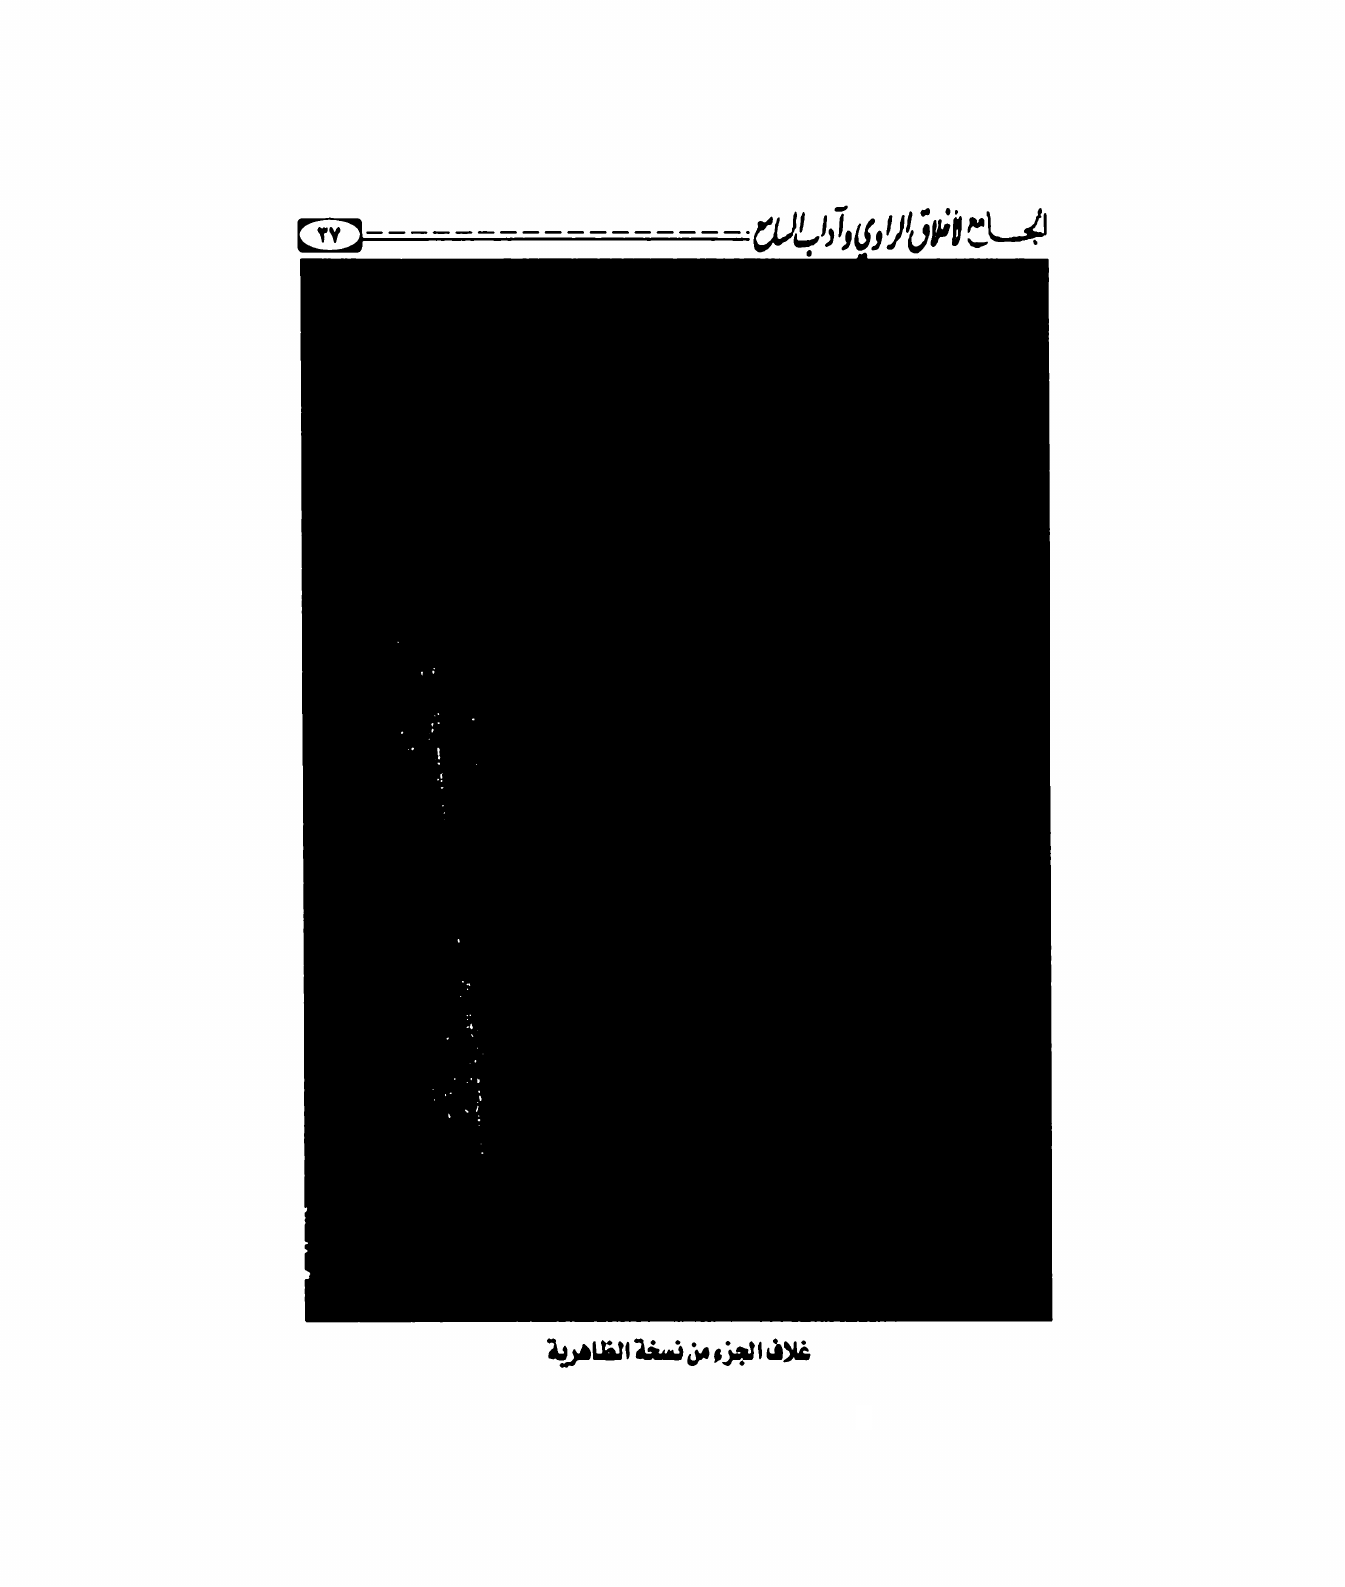 الجامع لأخلاق الراوي وآداب السامع
٣٧
غلاف الجزء من نسخة الظاهرية